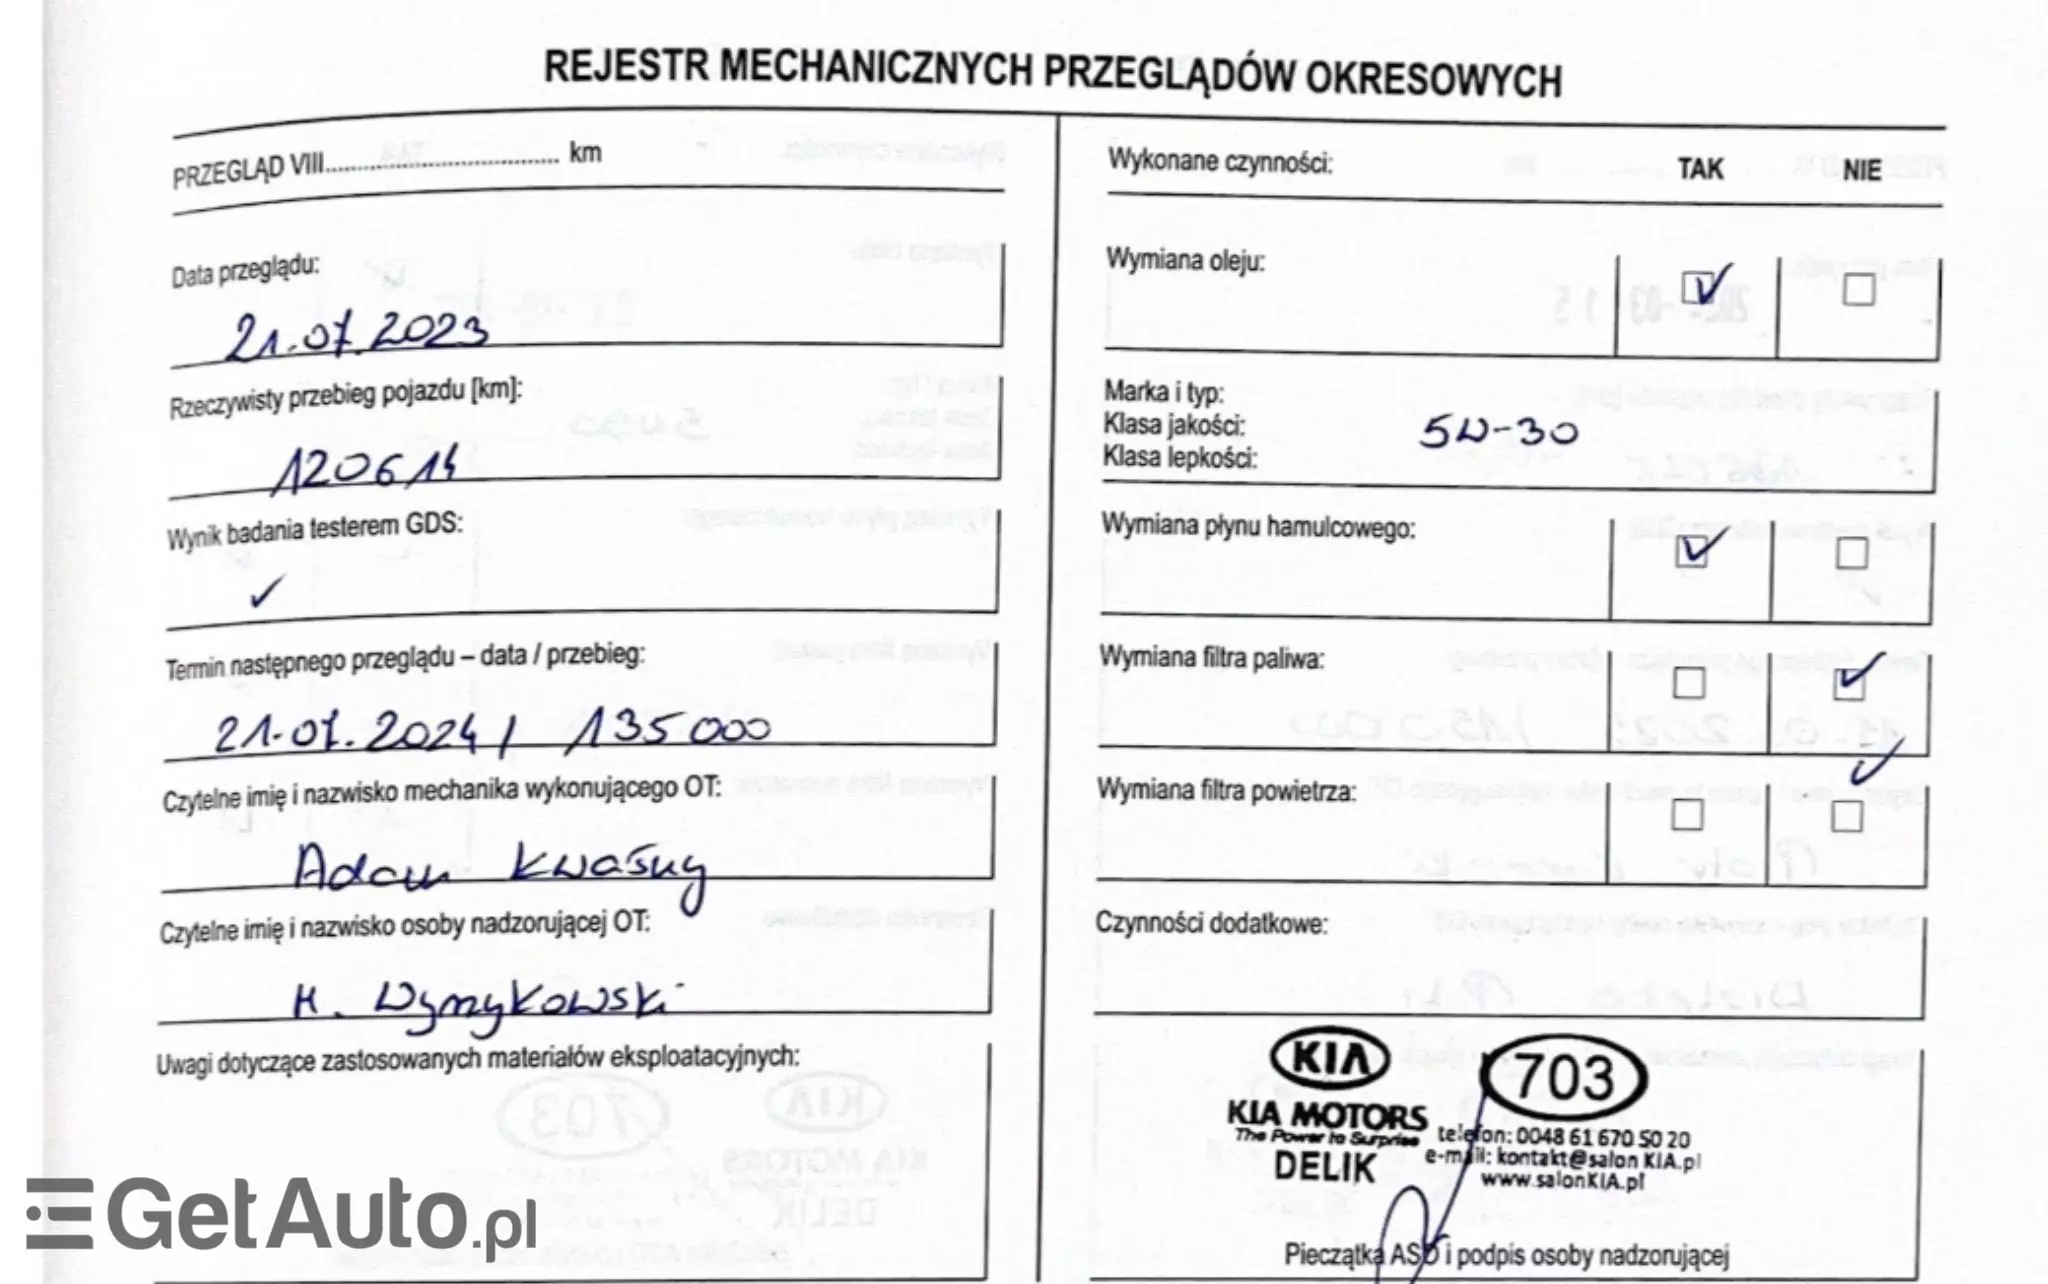 REJESTR MECHANICZNYCH PRZEGLĄDÓW OKRESOWYCH
PRZEGLĄD VIII.................................. km
Data przeglądu:
21.07.2023
Rzeczywisty przebieg pojazdu [km]:
120614
Wynik badania testerem GDS:
✓
Termin następnego przeglądu – data / przebieg:
21.07.2024 / 135000
Czytelne imię i nazwisko mechanika wykonującego OT:
Adam Kwaśny
Czytelne imię i nazwisko osoby nadzorującej OT:
H. Wymykowski
Uwagi dotyczące zastosowanych materiałów eksploatacyjnych:
Wykonane czynności: TAK NIE
Wymiana oleju:
Marka i typ:
Klasa jakości: 5W-30
Klasa lepkości:
Wymiana płynu hamulcowego:
Wymiana filtra paliwa:
Wymiana filtra powietrza:
Czynności dodatkowe:
KIA 703
KIA MOTORS
The Power to Surprise
DELIK
telefon: 0048 61 670 50 20
e-mail: kontakt@salonKIA.pl
www.salonKIA.pl
Pieczątka ASO i podpis osoby nadzorującej
GetAuto.pl